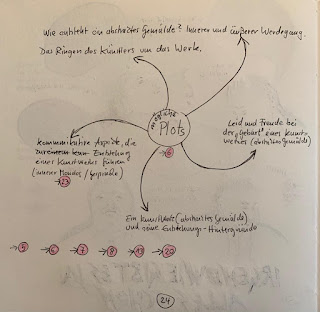 Wie entsteht ein abstraktes Gemälde? Innerer und äußerer Werdegang.
Das Ringen des Künstlers um das Werk.
mögliche
Plots
→6
Leid und Freude bei
der „Geburt" eines Kunst-
werkes (abstraktes Gemälde)
Kommunikative Aspekte, die
zur Entstehung
eines Kunstwerkes führen
(innerer Monolog / Gespräche)
→23
Ein Kunstwerk (abstraktes Gemälde)
und seine Entstehungs-Hintergründe
→5 →6 →7 →8 →19 →20
24